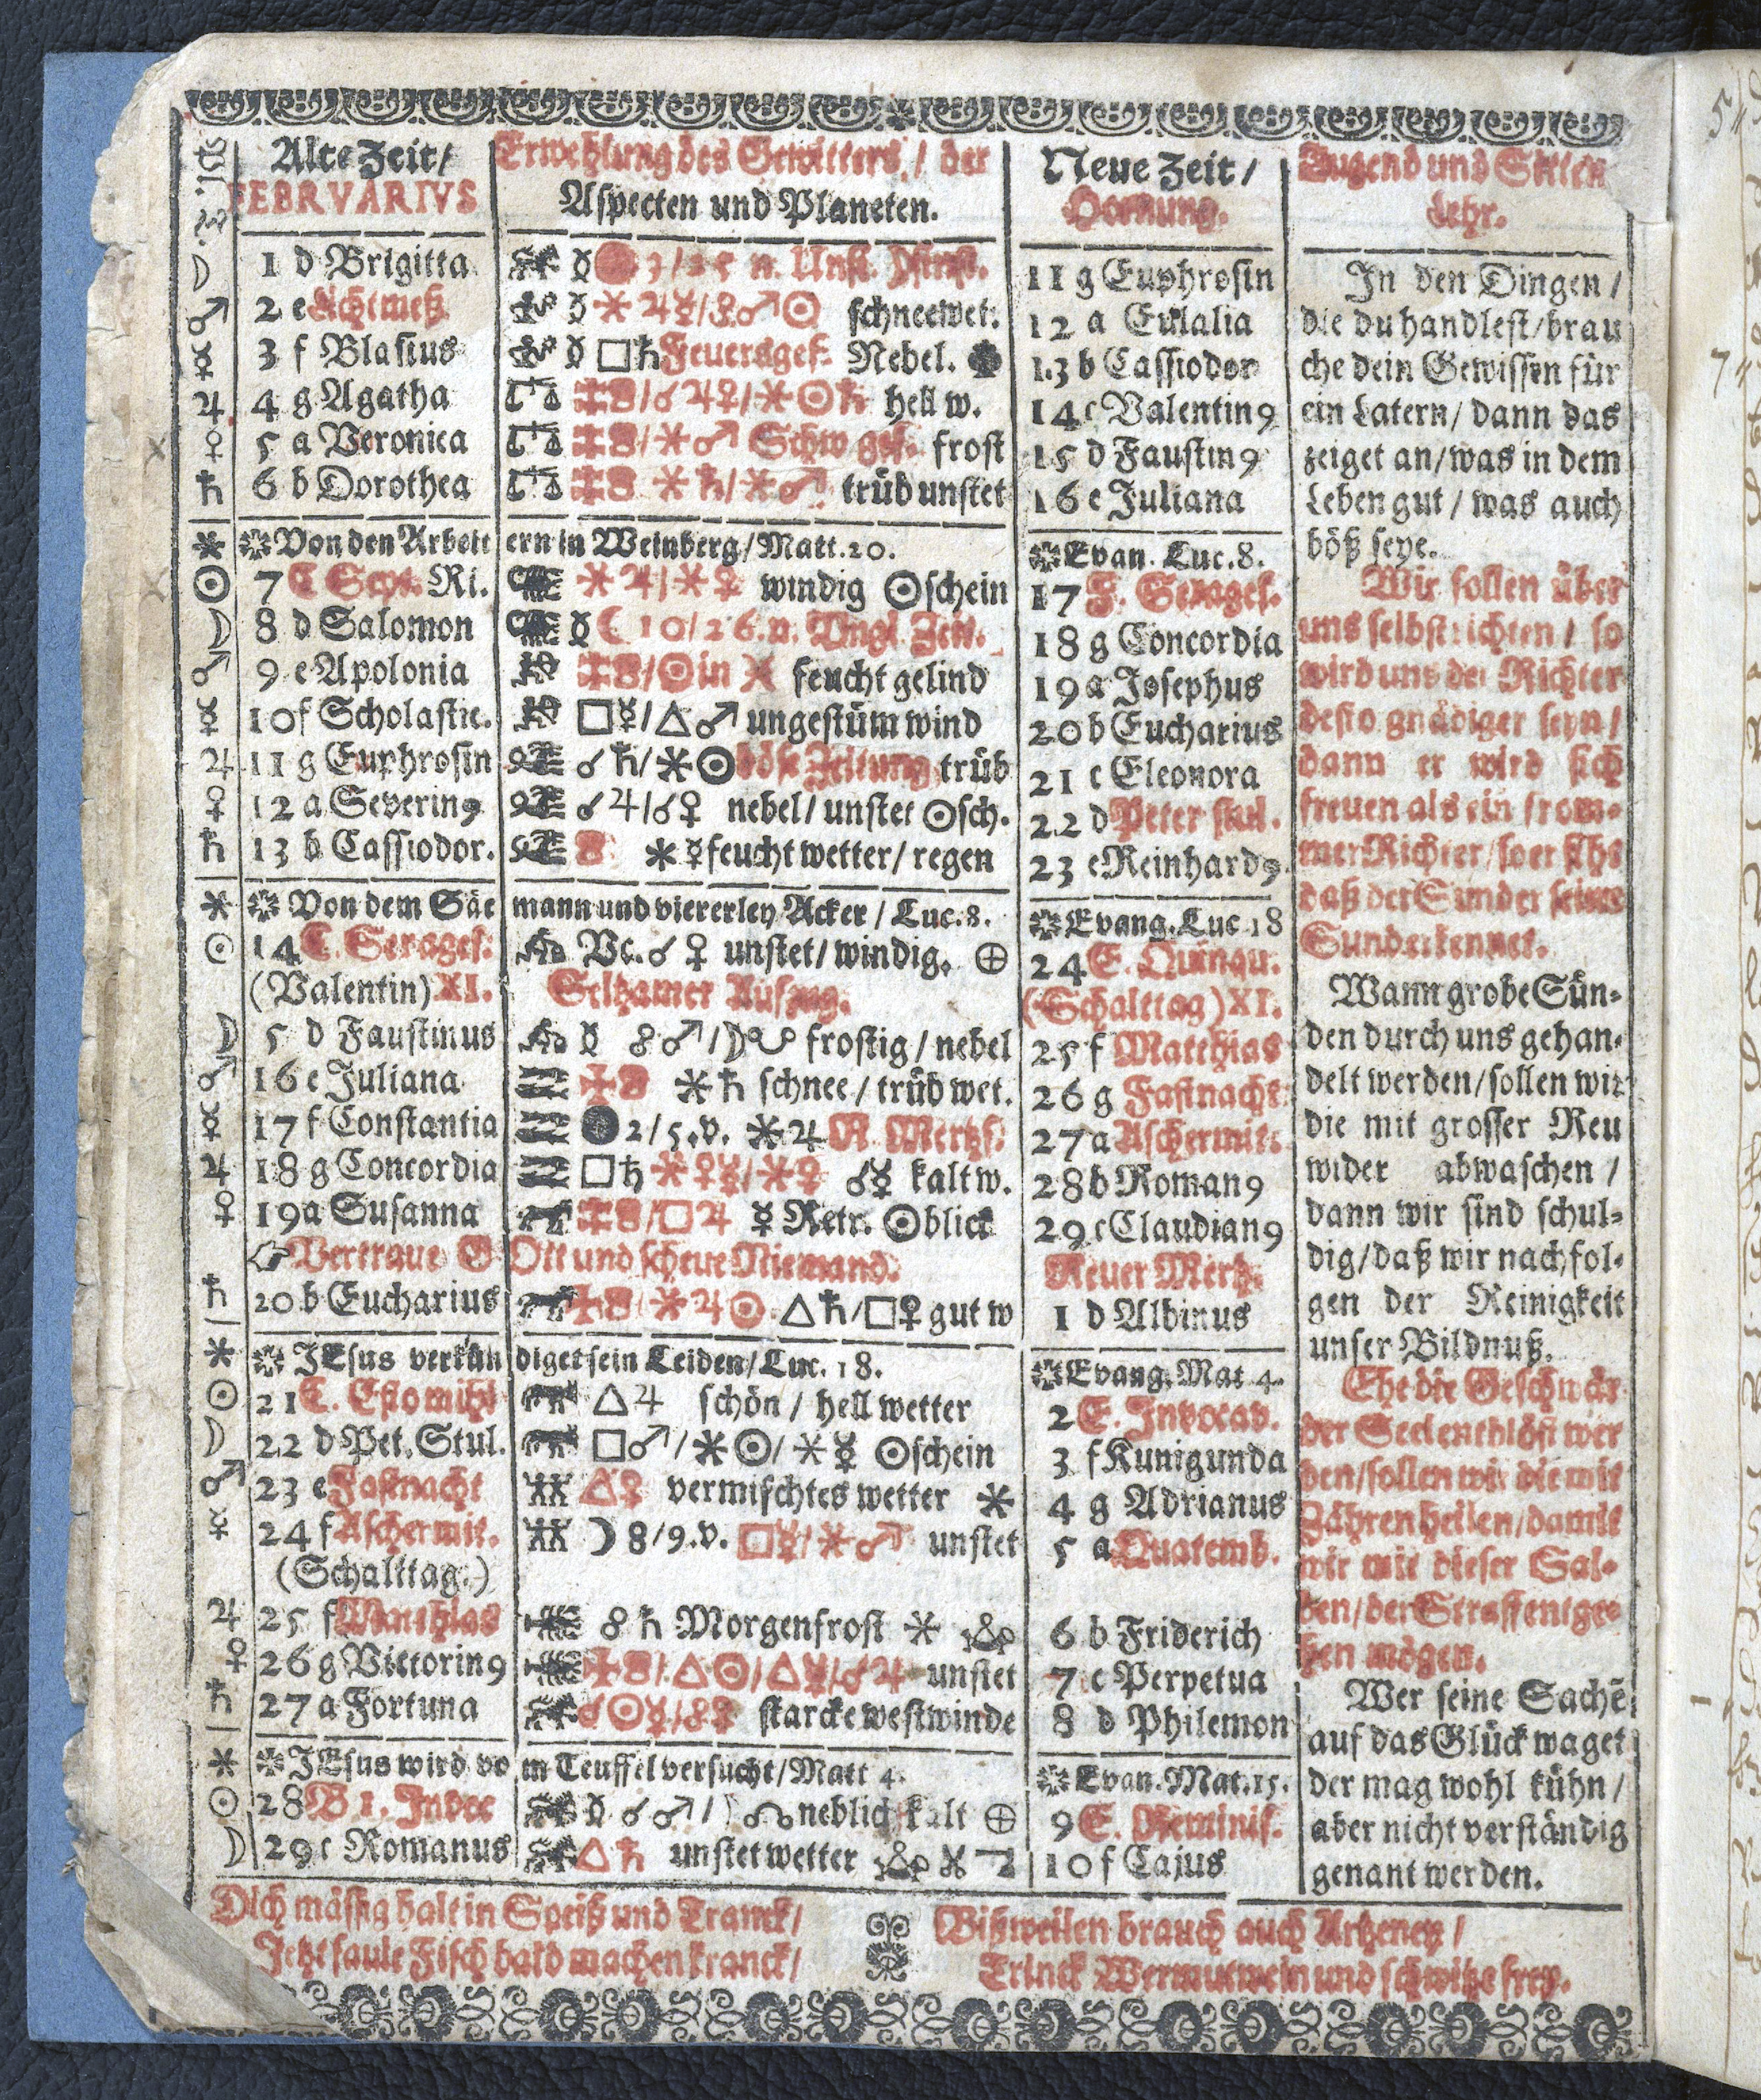 Alte Zeit/
FEBRVARIVS
Erwehlung des Gewitters/ der
Aspecten und Planeten.
Neue Zeit/
Hornung.
Tugend und Sitten
Lehr.
☽ 1 d Brigitta
♂ 2 e Lichtmeß ☿ ✶ ♃ ☿/ ♂ ☉ schneewet.
☿ 3 f Blasius ☿ □ ♄ Feuersgef. Nebel.
♃ 4 g Agatha /☌♃♀/✶☉♄ hell w.
♀ 5 a Veronica /✶♂ frost
♄ 6 b Dorothea ✶♄/✶♂ trüb unstet
✶ Von den Arbeitern in Weinberg/Matt.20.
☉ 7 C Sept. Ri. ✶♃/✶♀ windig ☉schein
☽ 8 d Salomon ☿ ☾ 10/26.n.
♂ 9 e Apolonia /☉in ♓ feucht gelind
☿ 10 f Scholastic. □☿/△♂ ungestüm wind
♃ 11 g Euphrosin ☌♄/✶☉ böse Zeitung trüb
♀ 12 a Severin9 ☌♃/☌♀ nebel/ unstet ☉sch.
♄ 13 b Cassiodor. ✶☿ feucht wetter/ regen
✶ Von dem Säemann und viererley Acker/ Luc.8.
☉ 14 C. Sexages. Vc.☌♀ unstet/ windig. ⊕
(Valentin) XI. Seltzamer Aufzug.
☽ 5 d Faustinus ☿ ☍♂/☽☋ frostig/ nebel
♂ 16 e Juliana ✶♄ schnee/ trüb wet.
☿ 17 f Constantia ● 2/5.v. ✶♃ N. Mertzs.
♃ 18 g Concordia □♄ ✶♀☿/✶♀ ☌☿ kalt w.
♀ 19 a Susanna /□♃ ☿ Retr. ☉blick
☞ Vertraue GOtt und scheue Niemand.
♄ 20 b Eucharius /✶♃☉ △♄/□♀ gut w
✶ JEsus verkündiget sein Leiden/Luc. 18.
☉ 21 C. Estomihi △♃ schön/ hell wetter
☽ 22 d Pet. Stul. □♂/✶☉/✶☿ ☉schein
♂ 23 e Fastnacht △♀ vermischtes wetter ✶
☿ 24 f Aschermit. ☽ 8/9.v. □☿/✶♂ unstet
(Schalttag.)
♃ 25 f Matthias ☍♄ Morgenfrost ✶
♀ 26 g Victorin9 /△☉/△☿/☌♃ unstet
♄ 27 a Fortuna ☌☉☿/☍♀ starcke westwinde
✶ JEsus wird vom Teuffel versucht/Matt 4.
☉ 28 B 1. Invoc ☿ ☌♂/☽☊ neblich kalt ⊕
☽ 29 c Romanus △♄ unstet wetter
11 g Euphrosin
12 a Eulalia
13 b Cassiodor
14 c Valentin9
15 d Faustin9
16 e Juliana
Evan. Luc.8.
17 F. Sexages.
18 g Concordia
19 a Josephus
20 b Eucharius
21 c Eleonora
22 d Peter stul.
23 e Reinhard9
Evang. Luc 18
24 E. Quinqu.
(Schalttag) XI.
25 f Matthias
26 g Fastnacht
27 a Aschermit.
28 b Roman9
29 c Claudian9
Neuer Mertz.
1 d Albinus
Evang. Mat 4.
2 E. Invocav.
3 f Kunigunda
4 g Adrianus
5 a Quatemb.
6 b Friderich
7 c Perpetua
8 d Philemon
Evan. Mat.15.
9 E. Reminis.
10 f Cajus
In den Dingen/
die du handlest/brau
che dein Gewissen für
ein Latern/ dann das
zeiget an/was in dem
Leben gut/ was auch
böß seye.
Wir sollen über
uns selbst richten/ so
wird uns der Richter
desto gnädiger seyn/
dann er wird sich
freuen als ein from-
mer Richter/ so er
daß der Sünder seine
Sünd erkennet.
Wann grobe Sün-
den durch uns gehan-
delt werden/sollen wir
die mit grosser Reu
wider abwaschen/
dann wir sind schul-
dig/daß wir nachfol-
gen der Reinigkeit
unser Bildnuß.
Ehe die Geschwär
der Seel entblöst wer
den/sollen wir die mit
Zähren heilen/damit
wir mit dieser Sal-
ben/der Straff entge-
hen mögen.
Wer seine Sachē
auf das Glück waget
der mag wohl kühn/
aber nicht verständig
genant werden.
Dich mässig halt in Speiß und Tranck/
Jetzt faule Fisch bald machen kranck/
Bißweilen brauch auch Artzeney/
Trinck Wermutwein und schwitze frey.